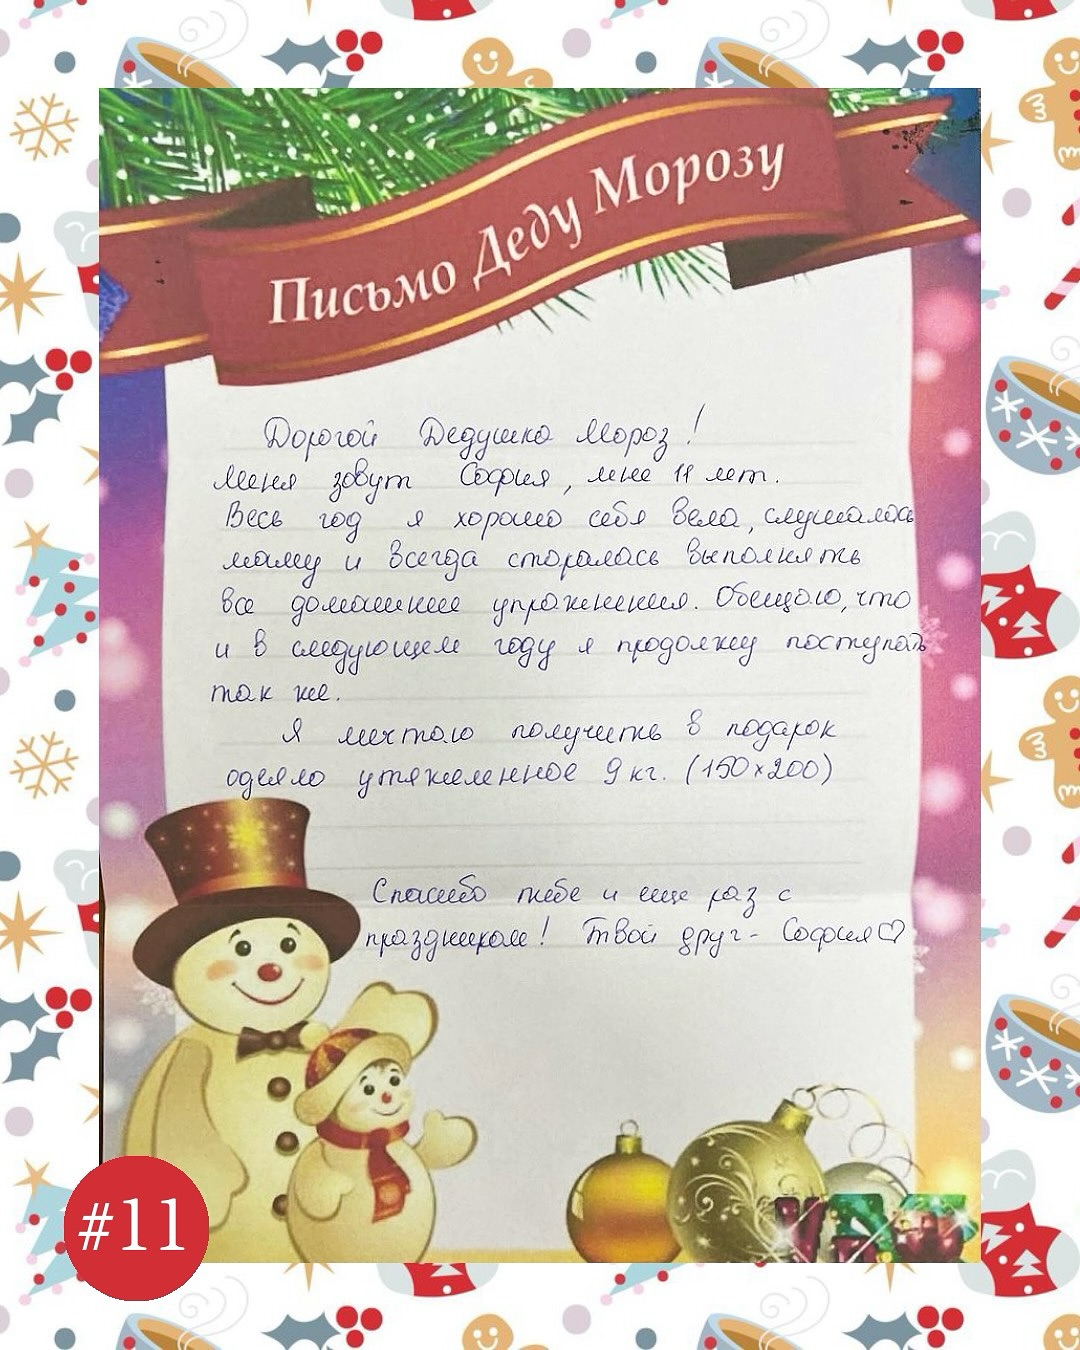 Письмо Деду Морозу
Дорогой Дедушка Мороз!
Меня зовут София, мне 11 лет.
Весь год я хорошо себя вела, слушалась
маму и всегда старалась выполнять
все домашние упражнения. Обещаю, что
и в следующем году я продолжу поступать
так же.
Я мечтаю получить в подарок
одеяло утяжеленное 9 кг. (150х200)
Спасибо тебе и еще раз с
праздником! Твой друг - София♡
#11